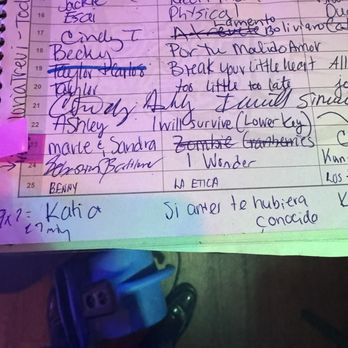 Jackie
16 Escal Physical
17 Cindy I Lamento Boliviano
18 Becky Por tu Maldito Amor
19 Taylor + Carlos Break Your Little Heart All
20 Taylor too little too late
21 Cindy, Ashly I will Survive
22 Ashley I will survive (Lower Key)
marle & Sandra Zombie Cranberries
24 I Wonder
25 BENNY LA ETICA LOS
Katia Si antes te hubiera
conocido